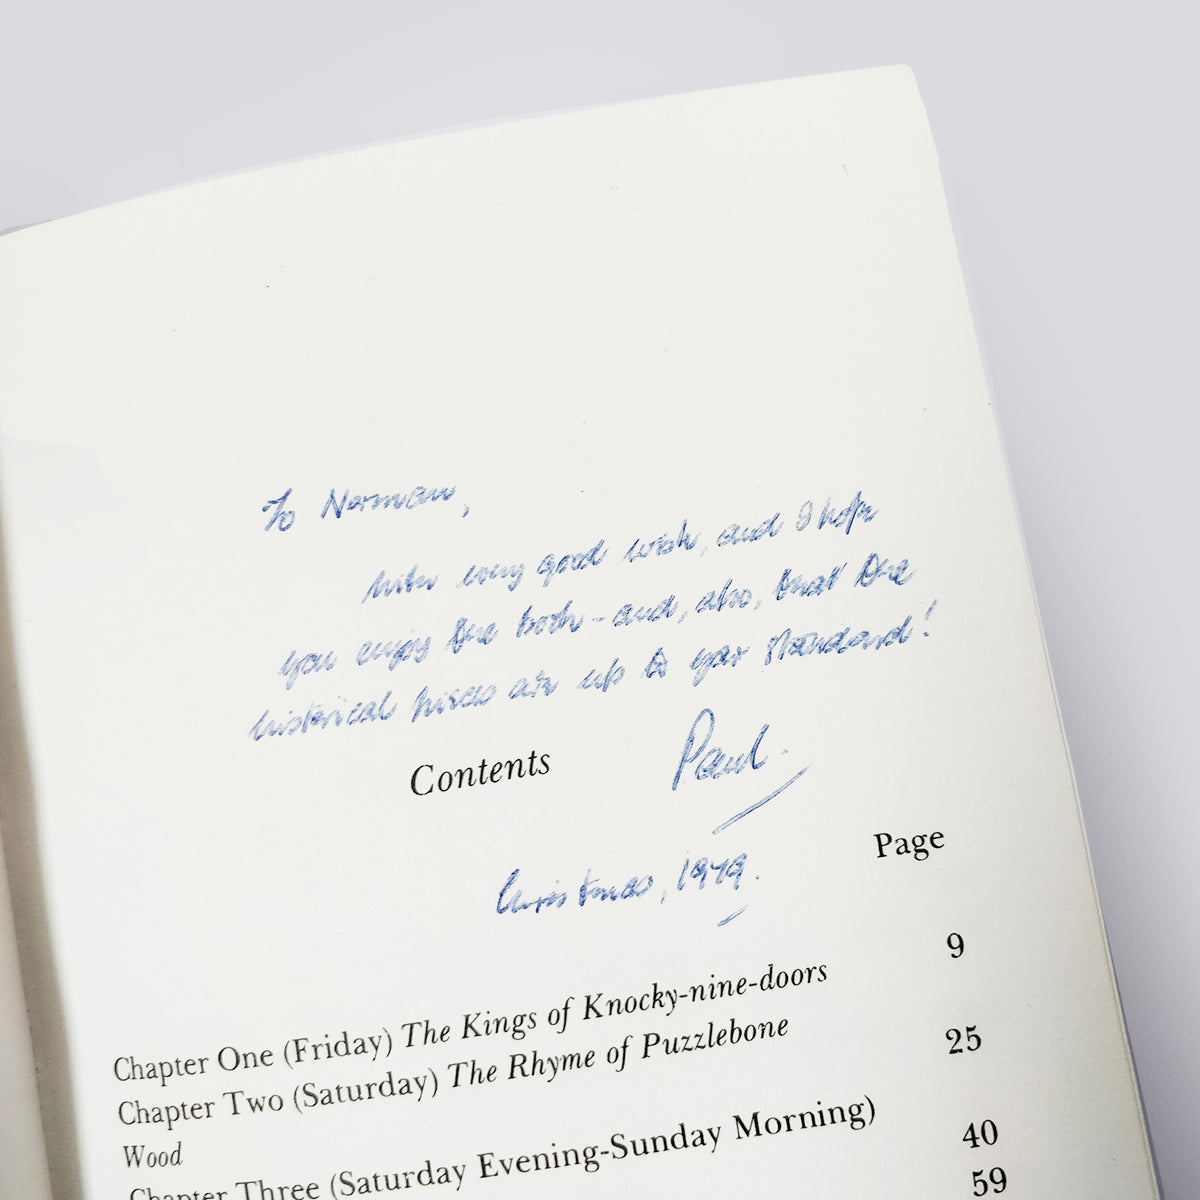 To Norman,
With every good wish, and I hope
you enjoy the book – and, also, that the
historical pieces are up to your standard!
Paul.
Contents
Christmas, 1979.
Page
Chapter One (Friday) The Kings of Knocky-nine-doors 9
Chapter Two (Saturday) The Rhyme of Puzzlebone 25
Wood
Chapter Three (Saturday Evening-Sunday Morning) 40
59